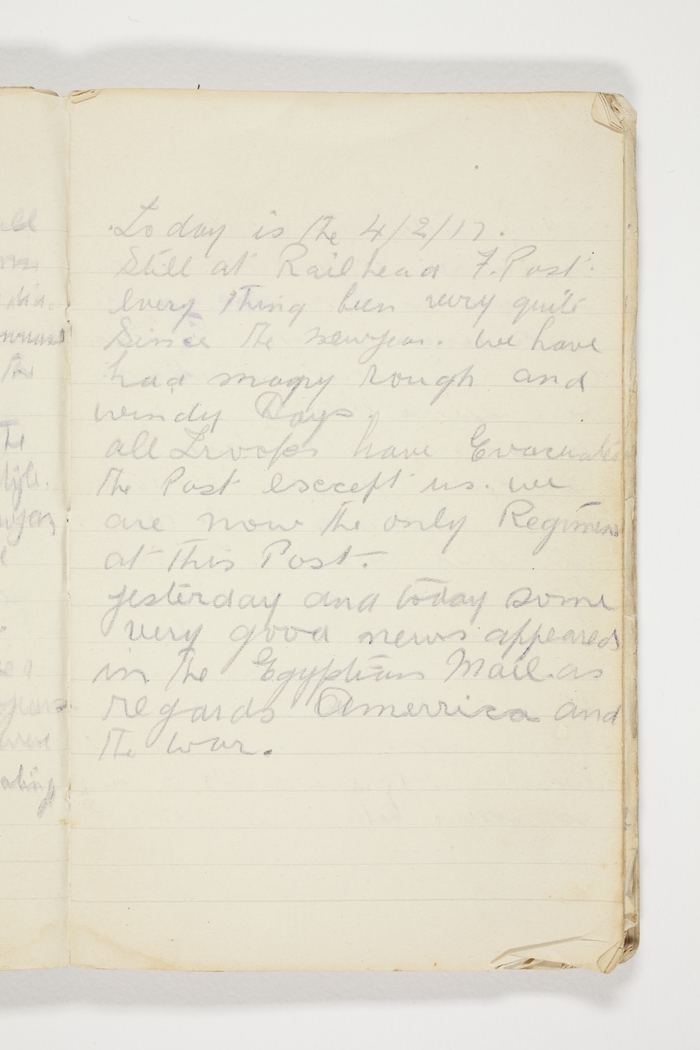 Today is the 4/2/17.
Still at Railhead F. Post.
every thing been very quite
Since the newyear. we have
had many rough and
windy Days.
all Troops have Evacuated
the Post except us. we
are now the only Regiment
at this Post.
yesterday and today some
very good news appeared
in the Egyptian Mail. as
regards Amerrica and
the war.